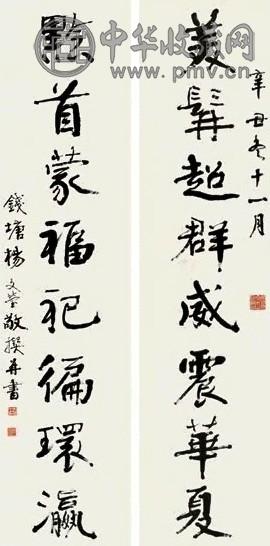 中华收藏网
www.pmv.cn
辛丑冬十一月
美髯超群威震華夏
黔首蒙福祀徧環瀛
錢塘楊文瑩敬撰并書